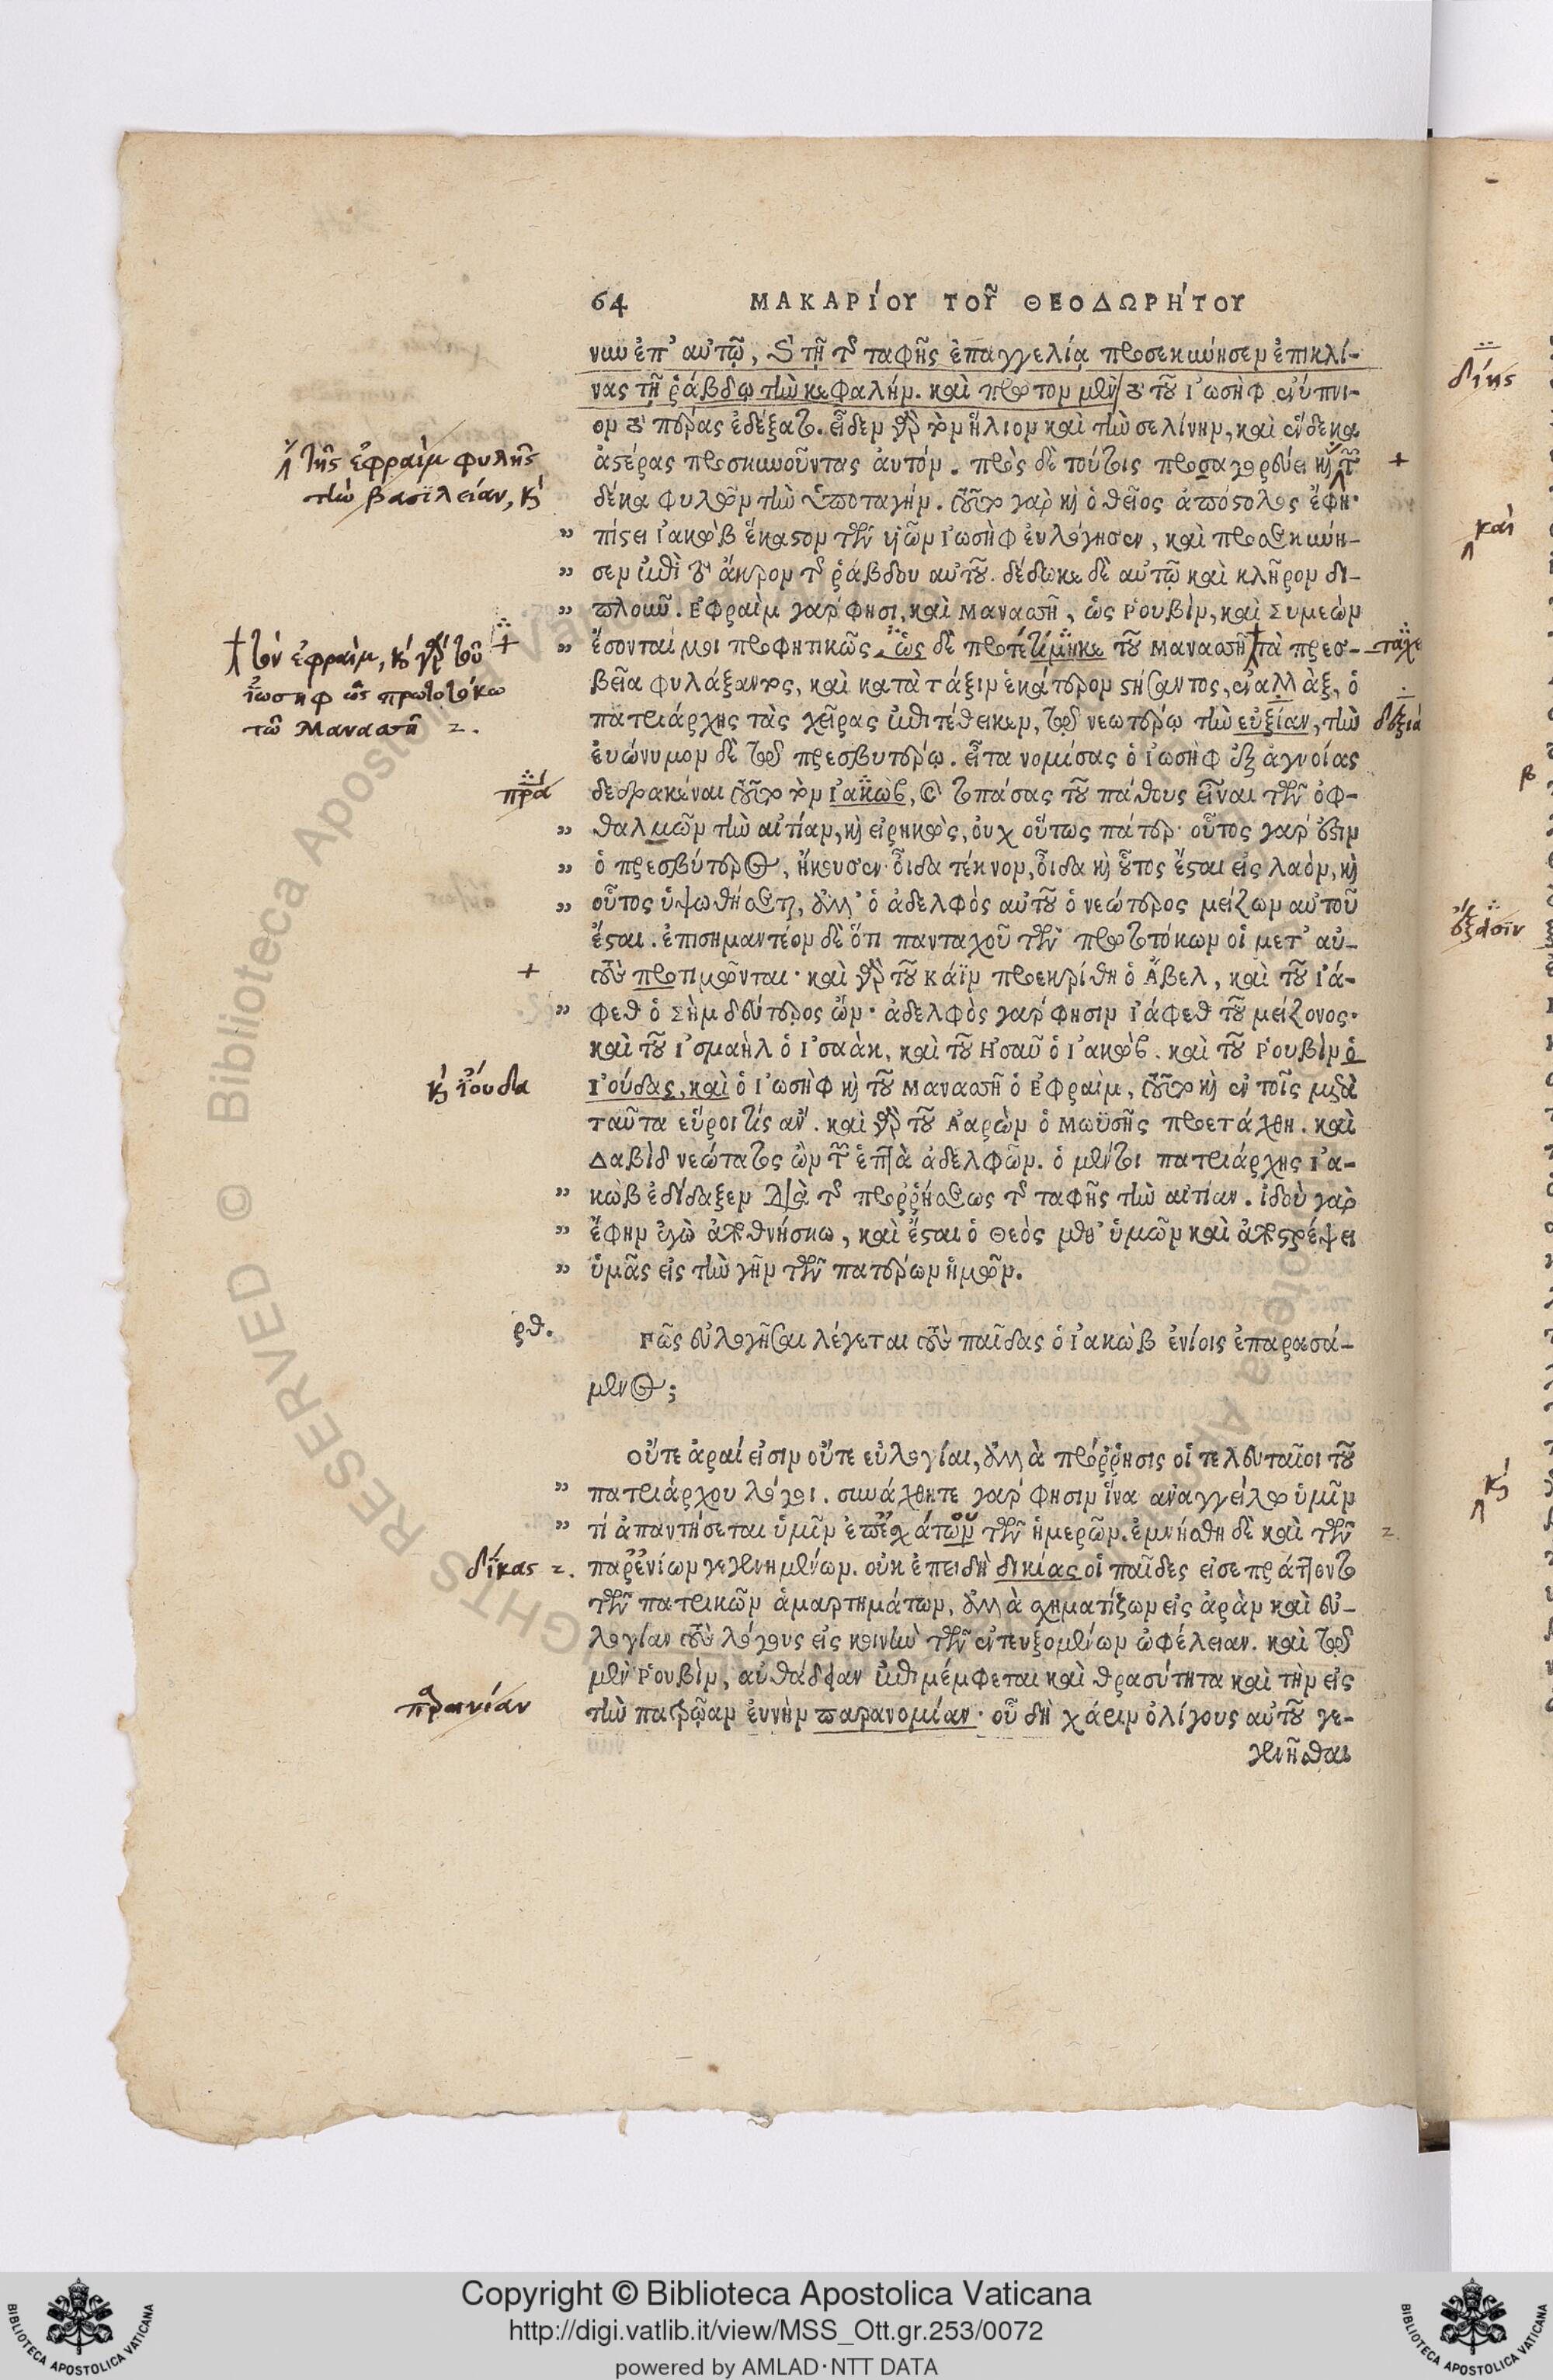 64 ΜΑΚΑΡΊΟΥ ΤΟΥ͂ ΘΕΟΔΩΡΉΤΟΥ
νυν ἐπ' αὐτῷ, καὶ τῇ τῆς ταφῆς ἐπαγγελίᾳ προσεκύνησεν ἐπικλί-
νας τῇ ῥάβδῳ τὴν κεφαλήν. καὶ πρῶτον μὲν τὸ τοῦ Ἰωσὴφ ἐνύπνι-
ον τὸ πέρας ἐδέξατο. εἶδεν γὰρ τὸν ἥλιον καὶ τὴν σελήνην, καὶ ἕνδεκα
ἀστέρας προσκυνοῦντας ἀυτόν. πρὸς δὲ τούτοις προσαγορεύει καὶ τῶν
δέκα φυλῶν τὴν ὑποταγήν. οὕτω γαρ καὶ ὁ θεῖος ἀπόστολος ἔφη·
" πίστει ἰακὼβ ἕκαστον τῶν υἱῶν Ἰωσὴφ ἐυλόγησεν, καὶ προσεκύνη-
" σεν ἐπὶ τὸ ἄκρον τῆς ῥάβδου αὐτοῦ. δέδωκε δὲ αὐτῷ καὶ κλῆρον δι-
" πλοῦν. Ἐφραὶμ γαρ φησι, καὶ Μανασσῆ, ὡς Ῥουβὶμ, καὶ Συμεὼν
" ἔσονταί μοι προφητικῶς, ὡς δὲ προτετίμηκε τοῦ Μανασσῆ τὰ πρεσ-
βεῖα φυλάξαντος, καὶ κατὰ τάξιν ἑκάτερον στήσαντος, ἐναλλὰξ, ὁ
πατριάρχης τὰς χεῖρας ἐπιτέθεικεν, τῷ νεωτέρῳ τὴν εὐξίαν, τὴν
ἐυώνυμον δὲ τῷ πρεσβυτέρῳ. εἶτα νομίσας ὁ ἰωσὴφ ἐξ ἀγνοίας
δεδρακέναι οὕτω τὸν ἰακὼβ, καὶ τοπάσας τοῦ πάθους εἶναι τῶν ὀφ-
" θαλμῶν τὴν αἰτίαν, καὶ εἰρηκὼς, ὀυχ οὕτως πάτερ· οὗτος γαρ ἐστιν
" ὁ πρεσβύτερος, ἤκουσεν· οἶδα τέκνον, οἶδα καὶ οὗτος ἔσται εἰς λαὸν, καὶ
" οὗτος ὑψωθήσεται, ἀλλ' ὁ ἀδελφὸς αὐτοῦ ὁ νεώτερος μείζων αὐτοῦ
ἔσται. ἐπισημαντέον δὲ ὅτι πανταχοῦ τῶν πρωτοτόκων οἱ μετ' αὐ-
τοὺς προτιμῶνται· καὶ γὰρ τοῦ Κάϊν προεκρίθη ὁ Ἄβελ, καὶ τοῦ Ἰά-
" φεθ ὁ Σὴμ δεύτερος ὤν· ἀδελφὸς γαρ φησιν Ἰάφεθ τοῦ μείζονος·
καὶ τοῦ Ἰσμαὴλ ὁ Ἰσαὰκ, καὶ τοῦ Ησαῦ ὁ Ἰακὼβ. καὶ τοῦ Ῥουβὶν ὁ
Ἰούδας, καὶ ὁ Ἰωσὴφ καὶ τοῦ Μανασσῆ ὁ Ἐφραὶμ, οὕτω καὶ ἐν τοῖς μετὰ
ταῦτα εὕροι τίς αν. καὶ γὰρ τοῦ Ἀαρὼν ὁ Μωϋσῆς προετάχθη. καὶ
Δαβὶδ νεώτατος ὢν τῶν ἑπτὰ ἀδελφῶν. ὁ μέντοι πατριάρχης Ἰα-
" κὼβ ἐδίδαξεν διὰ τῆς προῤῥήσεως τῆς ταφῆς τὴν αἰτίαν. ἰδοὺ γαρ
" ἔφην ἐγὼ ἀποθνήσκω, καὶ ἔσται ὁ Θεὸς μεθ' ὑμῶν καὶ ἀποστρέψει
" ὑμᾶς εἰς τὴν γῆν τῶν πατέρων ἡμῶν.
ρθ.
Πῶς εὐλογῆσαι λέγεται τοὺς παῖδας ὁ Ἰακὼβ ἐνίοις ἐπαρασά-
μενος;
Οὔτε ἀραί εἰσιν οὔτε εὐλογίαι, ἀλλὰ πρόῤῥησις οἱ τελευταῖοι τοῦ
" πατριάρχου λόγοι. συνάχθητε γαρ φησιν ἵνα αναγγείλω ὑμῖν
" τί ἀπαντήσεται ὑμῖν ἐπ' ἐσχάτων τῶν ἡμερῶν. ἐμνήσθη δὲ καὶ τῶν
παρ' ἐνίων γεγενημένων. οὐκ ἐπειδὴ δικίας οἱ παῖδες εἰσεπράττοντο
τῶν πατρικῶν ἁμαρτημάτων, ἀλλὰ σχηματίζων εἰς ἀρὰν καὶ εὐ-
λογίαν τοὺς λόγους εἰς κοινὴν τῶν ἐντευξομένων ὠφέλειαν. καὶ τῷ
μὲν Ῥουβὶν, αὐθάδειαν ἐπιμέμφεται καὶ θρασύτητα καὶ τὴν εἰς
τὴν πατρῴαν ἐυνὴν παρανομίαν· οὗ δὴ χάριν ὀλίγους αὐτοῦ γε-
γενῆσθαι
τῆς ἐφραὶμ φυλῆς
τὴν βασιλείαν, καὶ
τὸν ἐφραὶμ, καὶ γὰρ τοῦ
ἰωσὴφ ὡς πρωτοτόκω
τῶ Μανασσῆ
πρα
καὶ ἰούδα
δίκας
δεξιὰ
δίκης
καὶ
καὶ
Copyright © Biblioteca Apostolica Vaticana
http://digi.vatlib.it/view/MSS_Ott.gr.253/0072
powered by AMLAD·NTT DATA
BIBLIOTECA APOSTOLICA VATICANA
BIBLIOTECA APOSTOLICA VATICANA